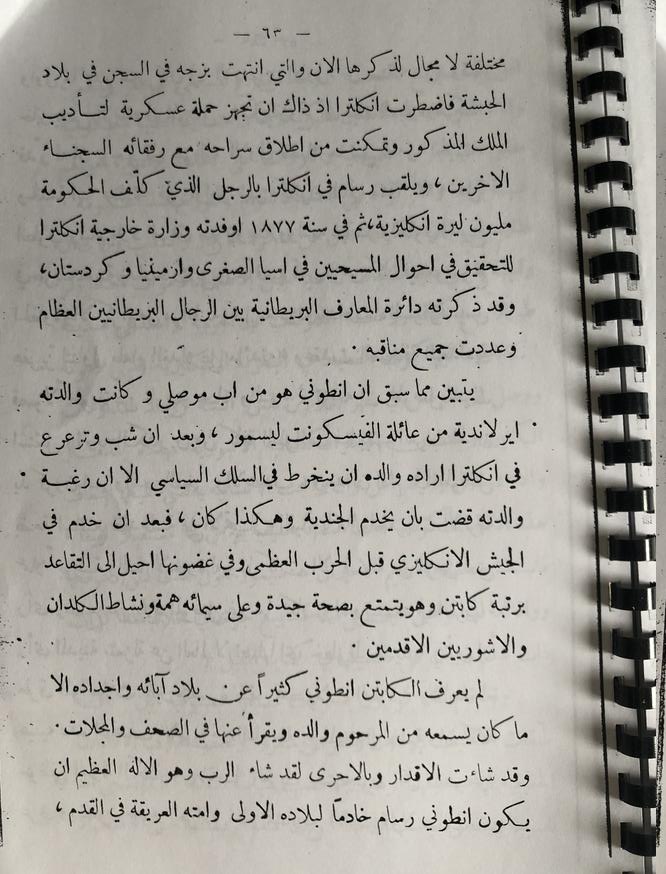 — ٦٣ —
مختلفة لا مجال لذكرها الان والتي انتهت بزجه في السجن في بلاد
الحبشة فاضطرت انكلترا اذ ذاك ان تجهز حملة عسكرية لتـأديب
الملك المذكور وتمكنت من اطلاق سراحه مع رفقائه السجنـاء
الاخرين ، ويلقب رسام في انكلترا بالرجل الذي كلّف الحكومة
مليون ليرة انكليزية،ثم في سنة ١٨٧٧ اوفدته وزارة خارجية انكلترا
للتحقيق في احوال المسيحيين في اسيا الصغرى وارمينيا وكردستان،
وقد ذكرته دائرة المعارف البريطانية بين الرجال البريطانيين العظام
وعددت جميع مناقبه .
يتبين مما سبق ان انطوني هو من اب موصلي وكانت والدته
ايرلاندية من عائلة الفيسكونت ليسمور ، وبعد ان شب وترعرع
في انكلترا اراده والده ان ينخرط في السلك السياسي الا ان رغبة
والدته قضت بان يخدم الجندية وهكذا كان ، فبعد ان خدم في
الجيش الانكليزي قبل الحرب العظمى وفي غضونها احيل الى التقاعد
برتبة كابتن وهو يتمتع بصحة جيدة وعلى سيمائه همة ونشاط الكلدان
والاشوريين الاقدمين .
لم يعرف الكابتن انطوني كثيراً عن بلاد آبائه واجداده الا
ما كان يسمعه من المرحوم والده ويقرأ عنها في الصحف والمجلات .
وقد شاءت الاقدار وبالاحرى لقد شاء الرب وهو الاله العظيم ان
يكون انطوني رسام خادماً لبلاده الاولى وامته العريقة في القدم ،